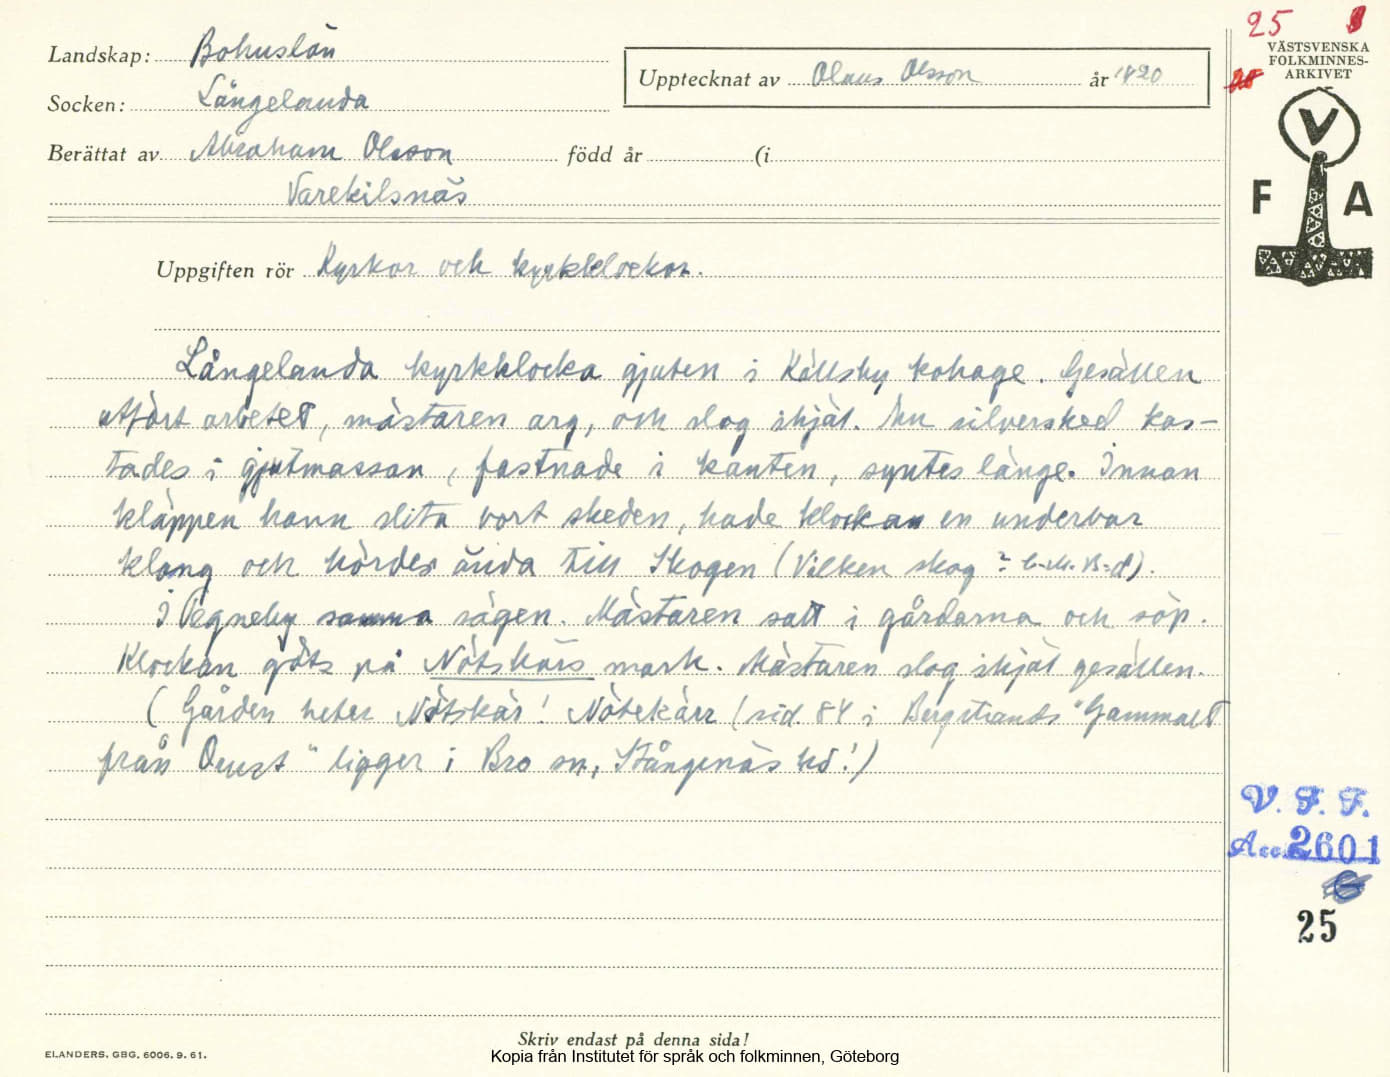 Landskap: Bohuslän
Socken: Långelanda
Upptecknat av Olaus Olsson år 1920
Berättat av Abraham Olsson född år (i
Varekilsnäs
Uppgiften rör Kyrkor och kyrkklockor.
Långelanda kyrkklocka gjuten i Källsby kohage. Gesällen
utfört arbetet, mästaren arg, och slog ihjäl. En silversked kas-
tades i gjutmassan, fastnade i kanten, syntes länge. Innan
kläppen hann slita bort skeden, hade klockan en underbar
klang och hördes ända till Skogen (Vilken skog?
I Tegneby samma sägen. Mästaren satt i gårdarna och söp.
Klockan göts på Nötskärs mark. Mästaren slog ihjäl gesällen.
(Gården heter Nötskär! Nötekärr (sid. 84 i Bergstrands "Gammalt
från Orust" ligger i Bro sn, Stångenäs hd!)
25
VÄSTSVENSKA
FOLKMINNES-
ARKIVET
V
F A
V. F. F.
Acc. 2601
25
Skriv endast på denna sida!
ELANDERS, GBG, 6006. 9. 61.
Kopia från Institutet för språk och folkminnen, Göteborg